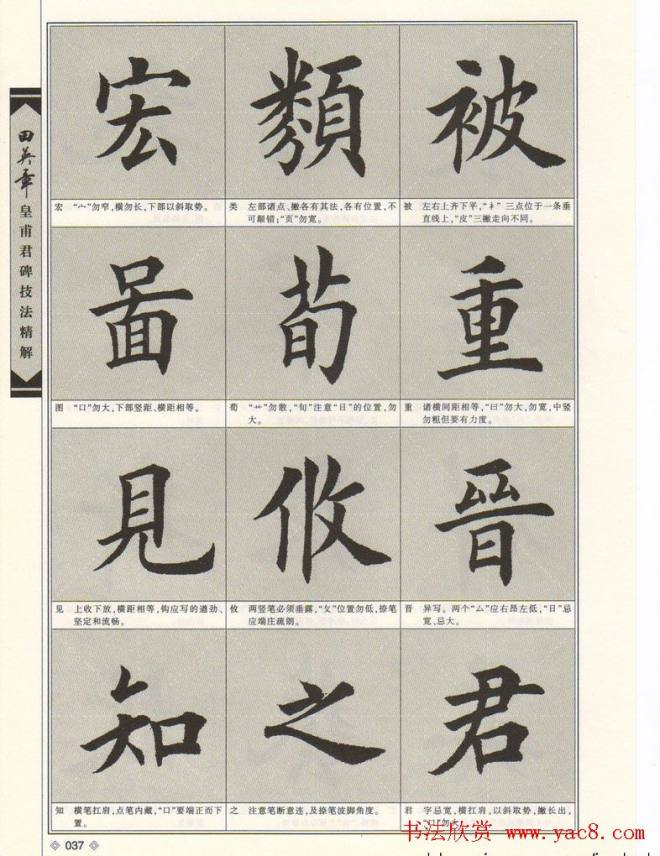 田英章
皇甫君碑技法精解
宏 類 被
宏 “宀”勿窄，横勿长，下部以斜取势。
类 左部诸点、撇各有其法，各有位置，不
可颠错；“页”勿宽。
被 左右上齐下平，“衤”三点位于一条垂
直线上，“皮”三撇走向不同。
啚 荀 重
图 “口”勿大，下部竖距、横距相等。
荀 “艹”勿散，“旬”注意“日”的位置，勿
大。
重 诸横间距相等，“曰”勿大、勿宽，中竖
勿粗但要有力度。
見 攸 晉
见 上收下放，横距相等，钩应写的遒劲、
坚定和流畅。
攸 两竖笔必须垂露，“攵”位置勿低，捺笔
应端庄疏朗。
晋 异写。两个“厶”应右昂左低，“日”忌
宽、忌大。
知 之 君
知 横笔扛肩，点笔内藏，“口”要端正而下
置。
之 注意笔断意连，及捺笔波脚角度。
君 字忌宽，横扛肩，以斜取势，撇长出，
“口”勿大。
037
书法欣赏 www.yac8.com